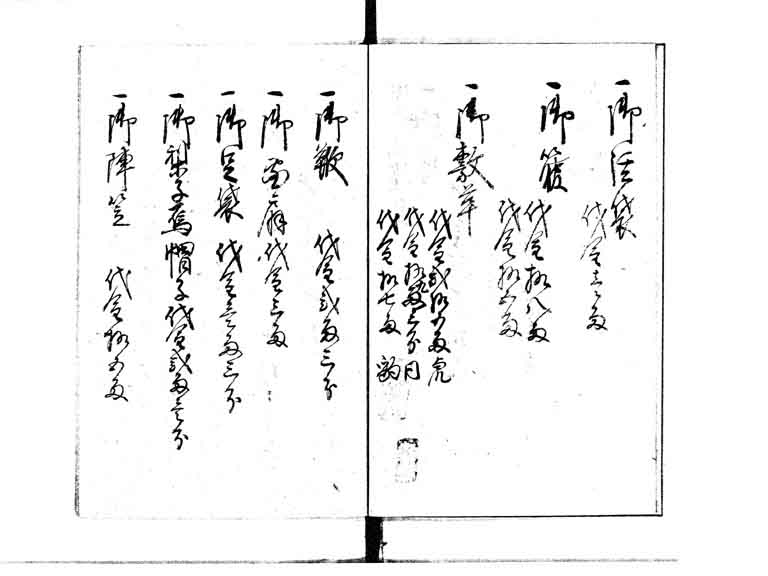 一御活袋
代金三両
一御箙
代金拾八両
代金拾五両
一御敷革
代金弐拾五両虎
代金拾両三分同
代金拾七両豹
一御鞭
代金弐両三分
一御扇代金三両
一御足袋代金壱両三分
一御梨子烏帽子代金弐両壱分
一御陣笠
代金拾五両